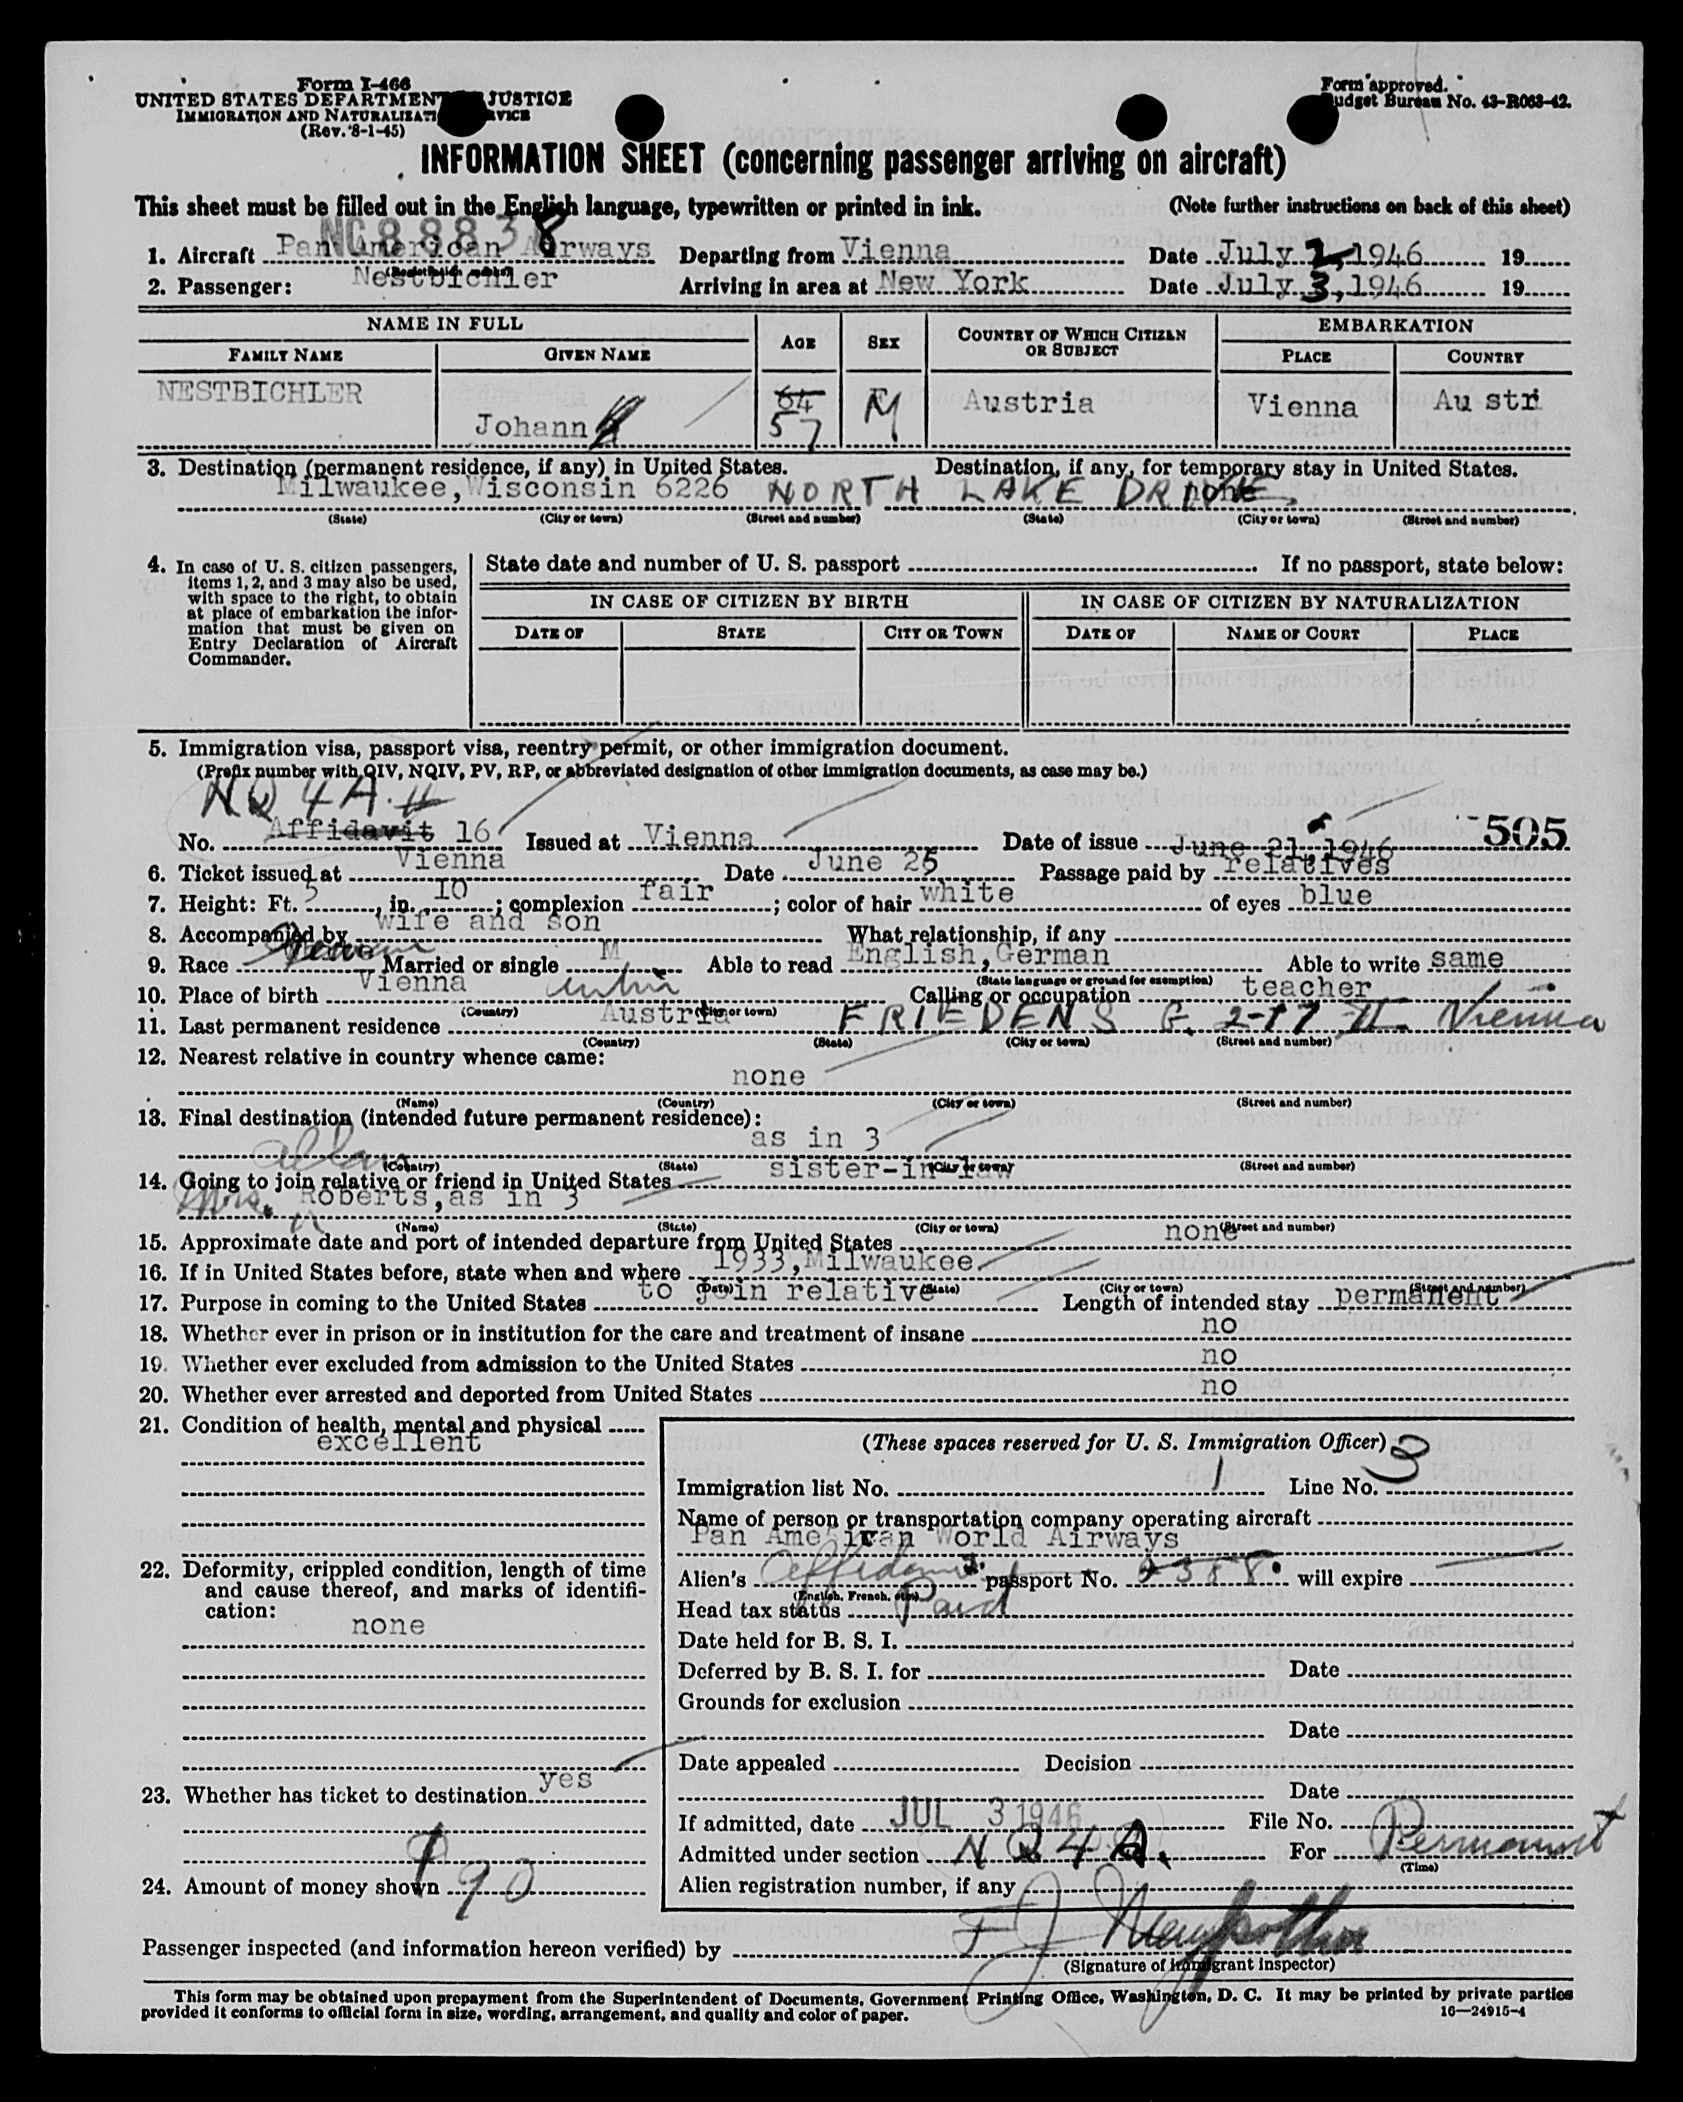 Form I-466
UNITED STATES DEPARTMENT JUSTICE
IMMIGRATION AND NATURALIZATI RVICE
(Rev. 8-1-45)
Form approved.
Budget Bureau No. 43-R063-42.
INFORMATION SHEET (concerning passenger arriving on aircraft)
This sheet must be filled out in the English language, typewritten or printed in ink. (Note further instructions on back of this sheet)
NC88838
1. Aircraft Pan American Airways Departing from Vienna Date July 2, 1946 19
2. Passenger: Nestbichler Arriving in area at New York Date July 3, 1946 19
NAME IN FULL AGE SEX COUNTRY OF WHICH CITIZEN OR SUBJECT EMBARKATION
FAMILY NAME GIVEN NAME PLACE COUNTRY
NESTBICHLER Johann 64 57 M Austria Vienna Au stri
3. Destination (permanent residence, if any) in United States. Destination, if any, for temporary stay in United States.
Milwaukee, Wisconsin 6226 NORTH LAKE DRIVE. none
(State) (City or town) (Street and number) (State) (City or town) (Street and number)
4. In case of U. S. citizen passengers, items 1, 2, and 3 may also be used, with space to the right, to obtain at place of embarkation the information that must be given on Entry Declaration of Aircraft Commander.
State date and number of U. S. passport If no passport, state below:
IN CASE OF CITIZEN BY BIRTH IN CASE OF CITIZEN BY NATURALIZATION
DATE OF STATE CITY OR TOWN DATE OF NAME OF COURT PLACE
5. Immigration visa, passport visa, reentry permit, or other immigration document.
(Prefix number with QIV, NQIV, PV, RP, or abbreviated designation of other immigration documents, as case may be.)
NQ 4A
No. Affidavit 16 Issued at Vienna Date of issue June 21, 1946 505
6. Ticket issued at Vienna Date June 25 Passage paid by relatives
7. Height: Ft. 5, in. 10; complexion fair; color of hair white of eyes blue
8. Accompanied by wife and son What relationship, if any
9. Race Married or single M Able to read English, German Able to write same
(State language or ground for exemption)
10. Place of birth Vienna Calling or occupation teacher
(Country) (City or town)
11. Last permanent residence Austria FRIEDENS G. 2-17 II. Vienna
(Country) (State) (City or town) (Street and number)
12. Nearest relative in country whence came:
none
(Name) (Country) (City or town) (Street and number)
13. Final destination (intended future permanent residence):
as in 3
(Country) (State) (City or town) (Street and number)
14. Going to join relative or friend in United States sister-in-law
Mrs. Roberts, as in 3
(Name) (State) (City or town) (Street and number)
15. Approximate date and port of intended departure from United States none
16. If in United States before, state when and where 1933, Milwaukee
(Date) (State) (City or town) (Street and number)
17. Purpose in coming to the United States to join relative Length of intended stay permanent
18. Whether ever in prison or in institution for the care and treatment of insane no
19. Whether ever excluded from admission to the United States no
20. Whether ever arrested and deported from United States no
21. Condition of health, mental and physical
excellent
22. Deformity, crippled condition, length of time and cause thereof, and marks of identification:
none
23. Whether has ticket to destination yes
24. Amount of money shown 90
(These spaces reserved for U. S. Immigration Officer)
Immigration list No. 1 Line No. 3
Name of person or transportation company operating aircraft
Pan American World Airways
Alien's Affidavit passport No. will expire
(English, French, etc.)
Head tax status Paid
Date held for B. S. I.
Deferred by B. S. I. for Date
Grounds for exclusion
Date
Date appealed Decision
Date
If admitted, date JUL 3 1946 File No.
Admitted under section NQ4A. For Permanent
(Time)
Alien registration number, if any
Passenger inspected (and information hereon verified) by
(Signature of immigrant inspector)
This form may be obtained upon prepayment from the Superintendent of Documents, Government Printing Office, Washington, D. C. It may be printed by private parties
provided it conforms to official form in size, wording, arrangement, and quality and color of paper. 16—24915-4